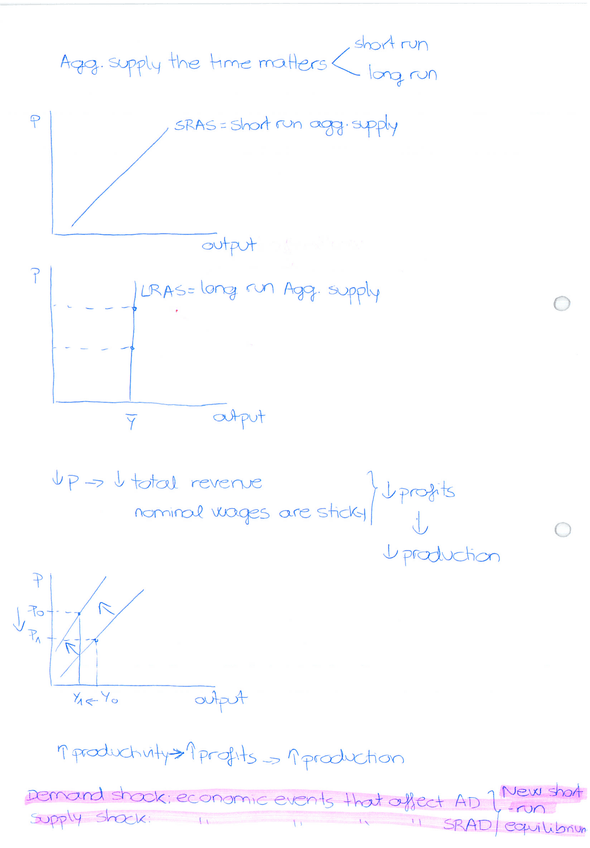 Agg. supply the time matters < short run
long run
P
SRAS = Short run agg. supply
output
P
LRAS = long run Agg. supply
Y̅
output
↓P → ↓ total revenue
nominal wages are sticky } ↓profits
↓
↓production
P
↓ P₀
P₁
Y₁ ← Y₀
output
↑productivity → ↑profits → ↑production
Demand shock: economic events that affect AD } New short
supply shock: " " " " SRAD -run
equilibrium